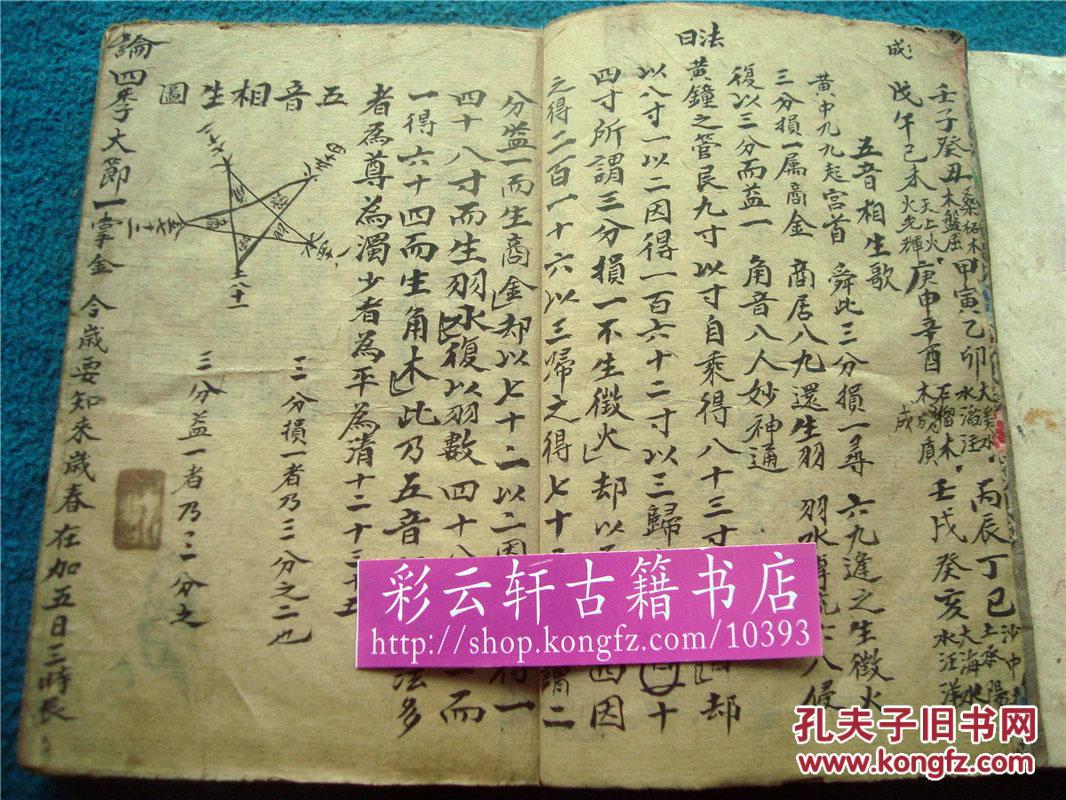 壬子癸丑 桑柘木 木盤屈 甲寅乙卯 大溪水 水滔汪 丙辰丁巳 沙中土
戊午己未 天上火 火光輝 庚申辛酉 石榴木 木 壬戌癸亥 大海水 水汪洋
成
五音相生歌
黄中九九起宫首 舜此三分損一尋 六九逢之生徵火
三分損一属商金 商居八九還生羽 羽水
復以三分而益一 角音八人妙神通
法曰
黄鐘之管長九寸以寸自乘得八十三寸 却
以八寸一以二因得一百六十二寸以三歸 十
四寸所謂三分損一不生徵火却以 四因
之得二百一十六以三歸之得七十 謂二
分益一而生商金却以七十二以二因 得一
四十八寸而生羽水復以羽數四十八 而
一得六十四而生角木此乃五音 法多
者為尊為濁少者為平為清十二十三十五
三分損一者乃三分之二也
三分益一者乃三分之
五音相生圖
八十一
論四季大節一掌金 今歲要知來歲春在加五日三時辰
彩云轩古籍书店
http://shop.kongfz.com/10393
孔夫子旧书网
www.kongfz.com